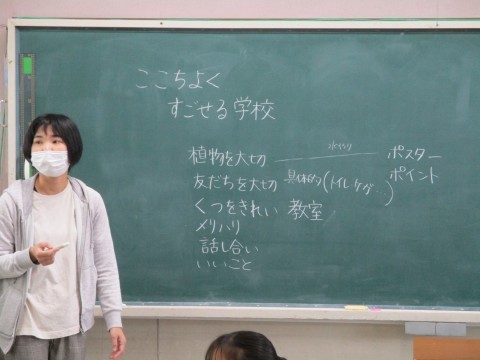 ここちよく
すごせる学校
植物を大切 水やり ポスター
友だちを大切 具体的(トイレ・ケガ) ポイント
くつをきれい 教室
メリハリ
話し合い
いいこと